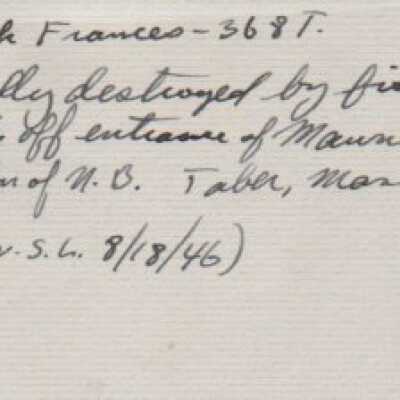 k Frances - 368 T.
lly destroyed by fi
off entrance of Maun
of N. B. Taber, Mas
v. S. L. 8/18/46)